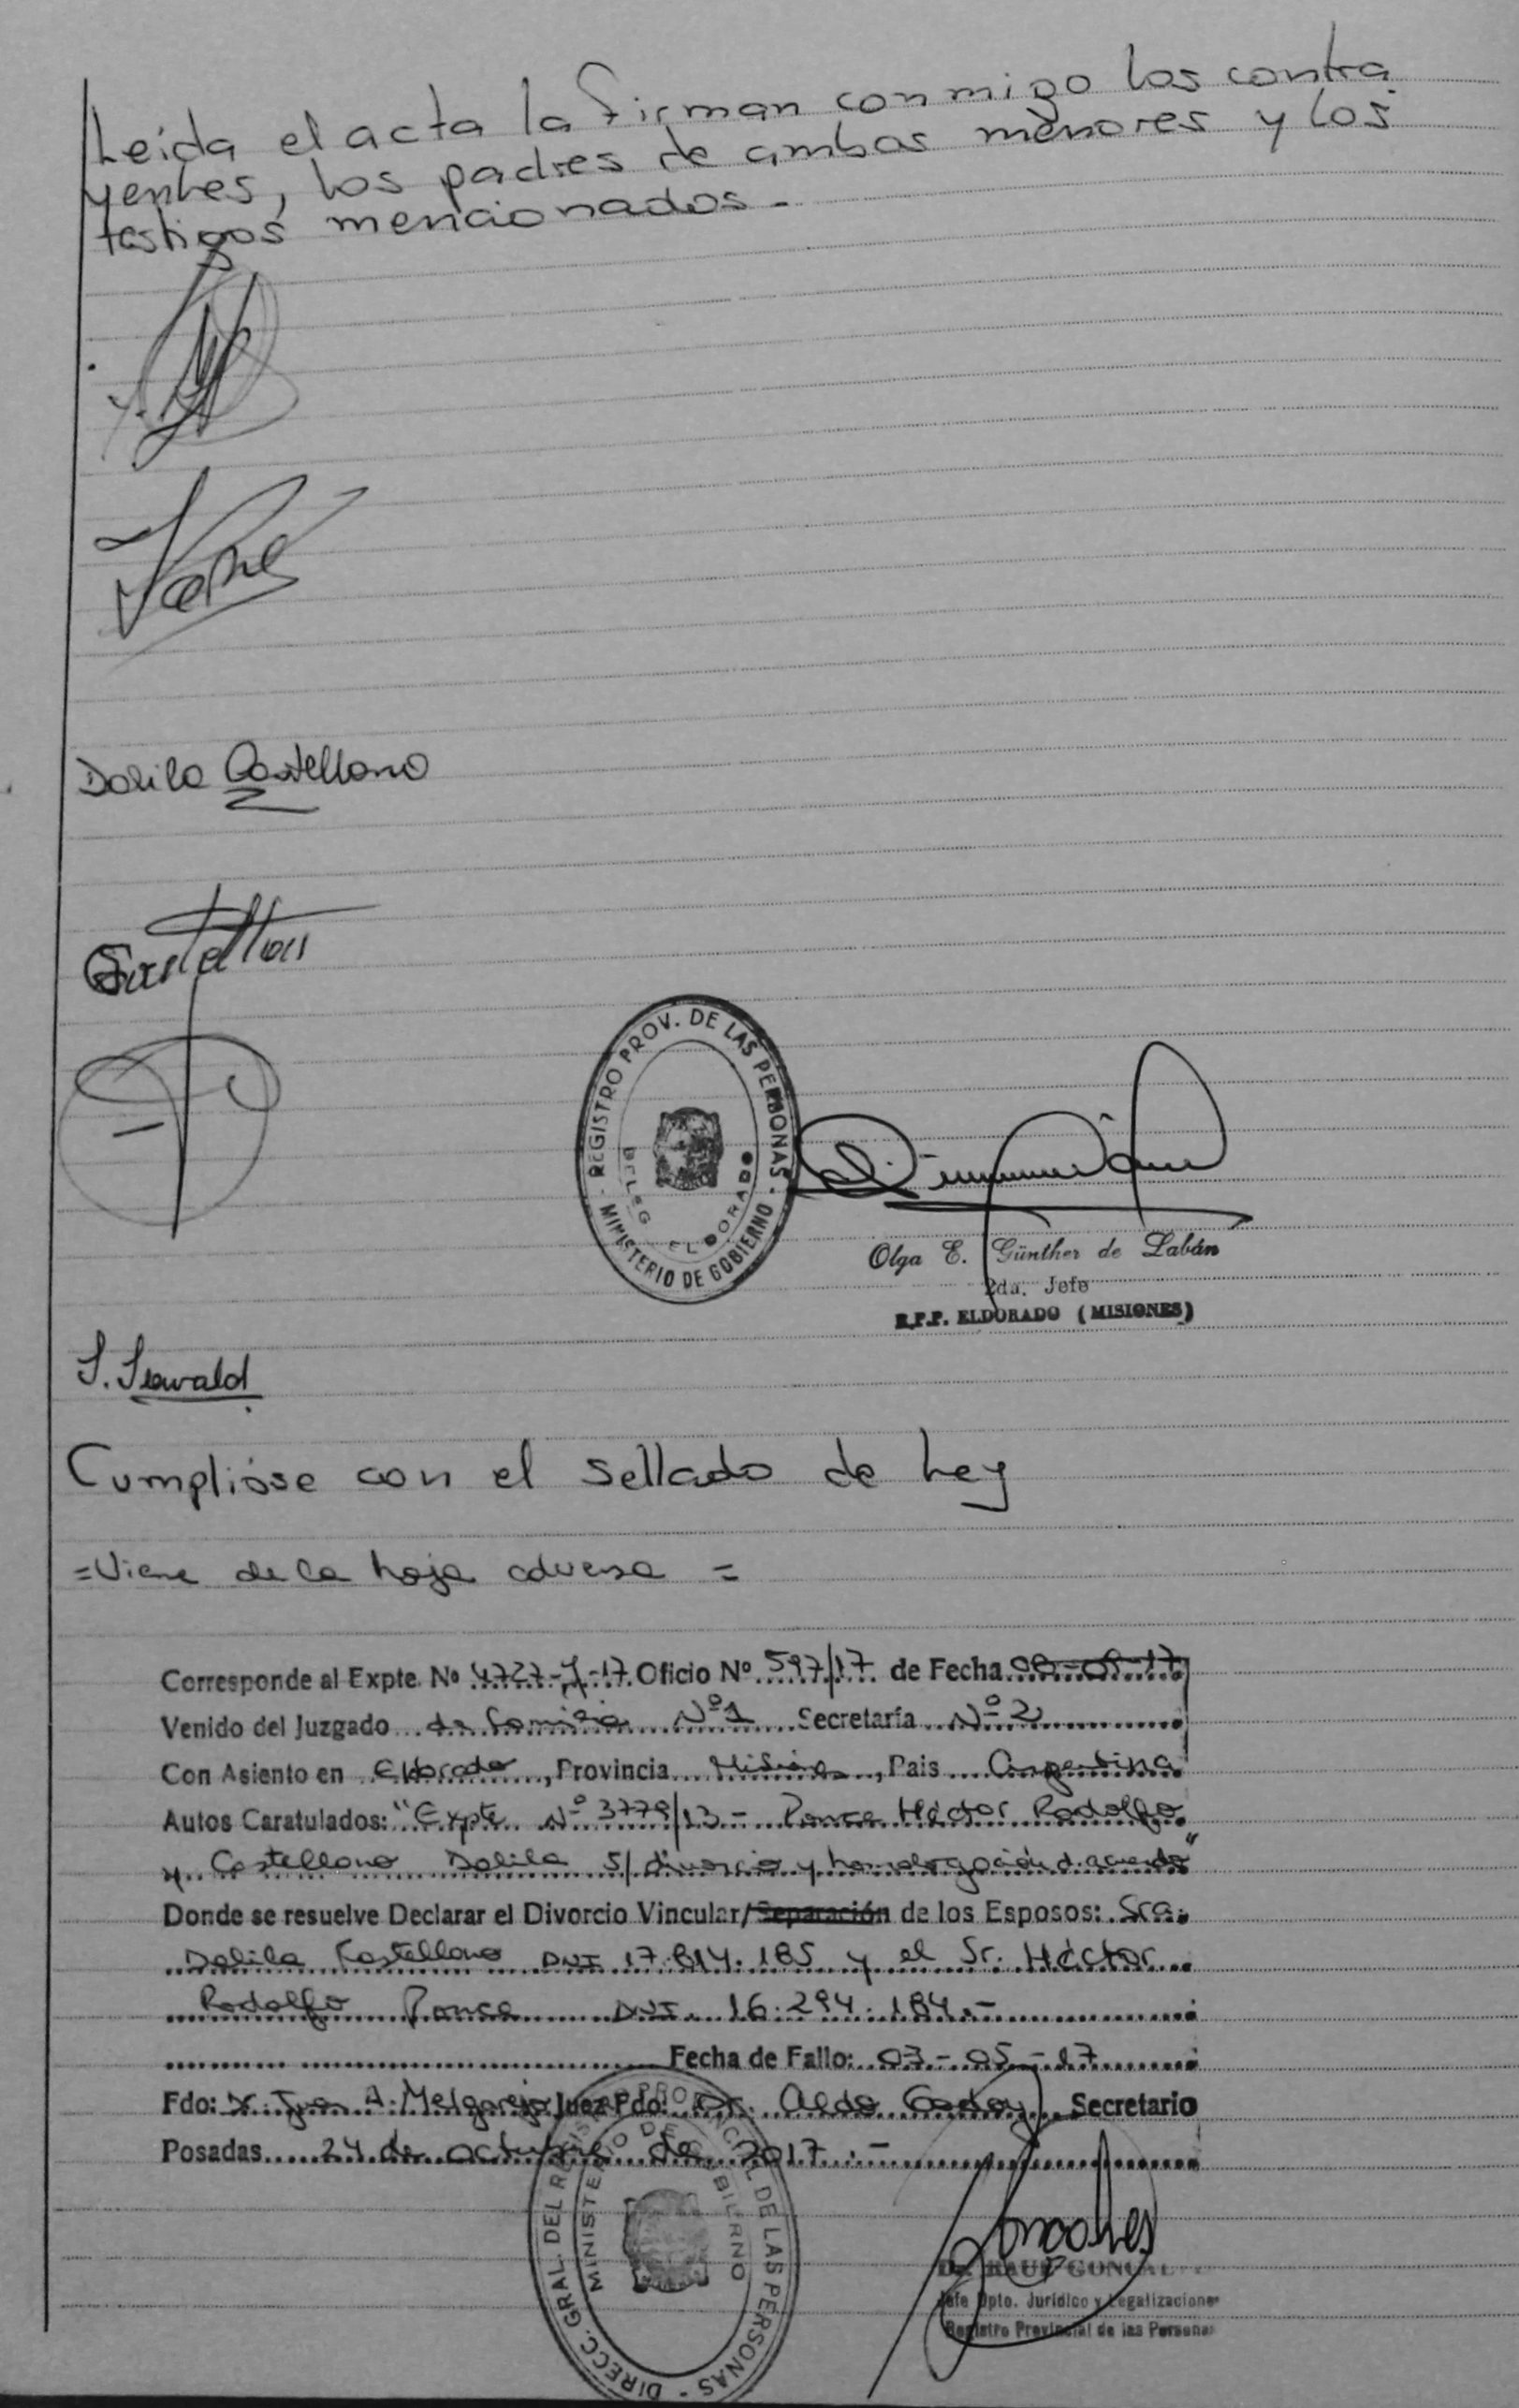 Leída el acta la firman conmigo los contra
yentes, los padres de ambos menores y los
testigos mencionados.-
Dalila Castellano
REGISTRO PROV. DE LAS PERSONAS - MINISTERIO DE GOBIERNO -
DELEG. ELDORADO
Olga E. Günther de Labán
2da. Jefe
R.P.P. ELDORADO (MISIONES)
S. Sewald
Cumplióse con el sellado de Ley
=Viene de la hoja adversa =
Corresponde al Expte. Nº 4727-Y-17 Oficio Nº 597/17 de Fecha
Venido del Juzgado de Familia Nº1 Secretaría Nº 2
Con Asiento en Eldorado, Provincia Misiones, Pais Argentina
Autos Caratulados: "Expte Nº 3779/13 - Ponce Héctor Rodolfo
y Castellano Dalila S/ divorcio y homologación d. acuerdo"
Donde se resuelve Declarar el Divorcio Vincular/Separación de los Esposos: Sra.
Dalila Castellano DNI 17.814.185 y el Sr. Héctor
Rodolfo Ponce DNI. 16.294.184.-
Fecha de Fallo: 03-05-17
Fdo: Dr. Juan A. Melgarejo Juez Fdo: Dr. Aldo Godoy Secretario
Posadas 24 de octubre de 2017.-
DIRECC. GRAL. DEL REGISTRO PROVINCIAL DE LAS PERSONAS -
MINISTERIO DE GOBIERNO
Dr. RAUL GONCALVES
Jefe Dpto. Jurídico y Legalizaciones
Registro Provincial de las Personas